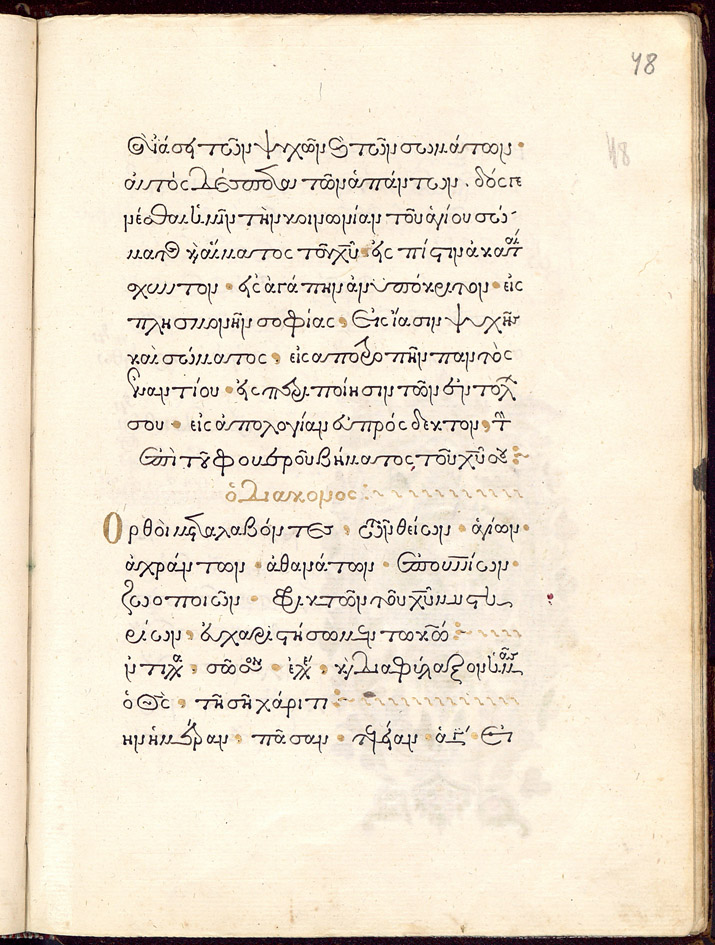 48
48
εὐεργέτα τῶν ψυχῶν καὶ τῶν σωμάτων·
αὐτὸς Δέσποτα τῶν ἁπάντων. δὸς γε
νέσθαι ἡμῖν τὴν κοινωνίαν τοῦ ἁγίου σώ
ματο καὶ αἵματος τοῦ χῦ εἰς πίστιν ἀκατ
σχυντον · εἰς ἀγάπην ἀνυπόκριτον · εἰς
πλησμονὴν σοφίας, εἰς ἴασιν ψυχῆς
καὶ σώματος, εἰς ἀποτροπὴν παντὸς
ἐναντίου · εἰς περιποίησιν τῶν ἐντολ
σου · εἰς ἀπολογίαν εὐπρόσδεκτον, τ
ἐπὶ τοῦ φοβεροῦ βήματος τοῦ χῦ σου
ὁ Διάκονος
Ορθοὶ μεταλαβόντες, τῶν θείων · ἁγίων ·
ἀχράντων · ἀθανάτων · ἐπουνίων ·
ζωοποιῶν · φρικτῶν τοῦ χῦ μυστη
ρίων, εὐχαριστήσωμεν τῶ κῶ
ἀντιλ · σῶσον · ἐλε · καὶ Διαφύλαξον ἡμᾶς
ὁ Θς, τῆ σῆ χάριτι
τὴν ἡμέραν, πᾶσαν · τελείαν · ἁγ